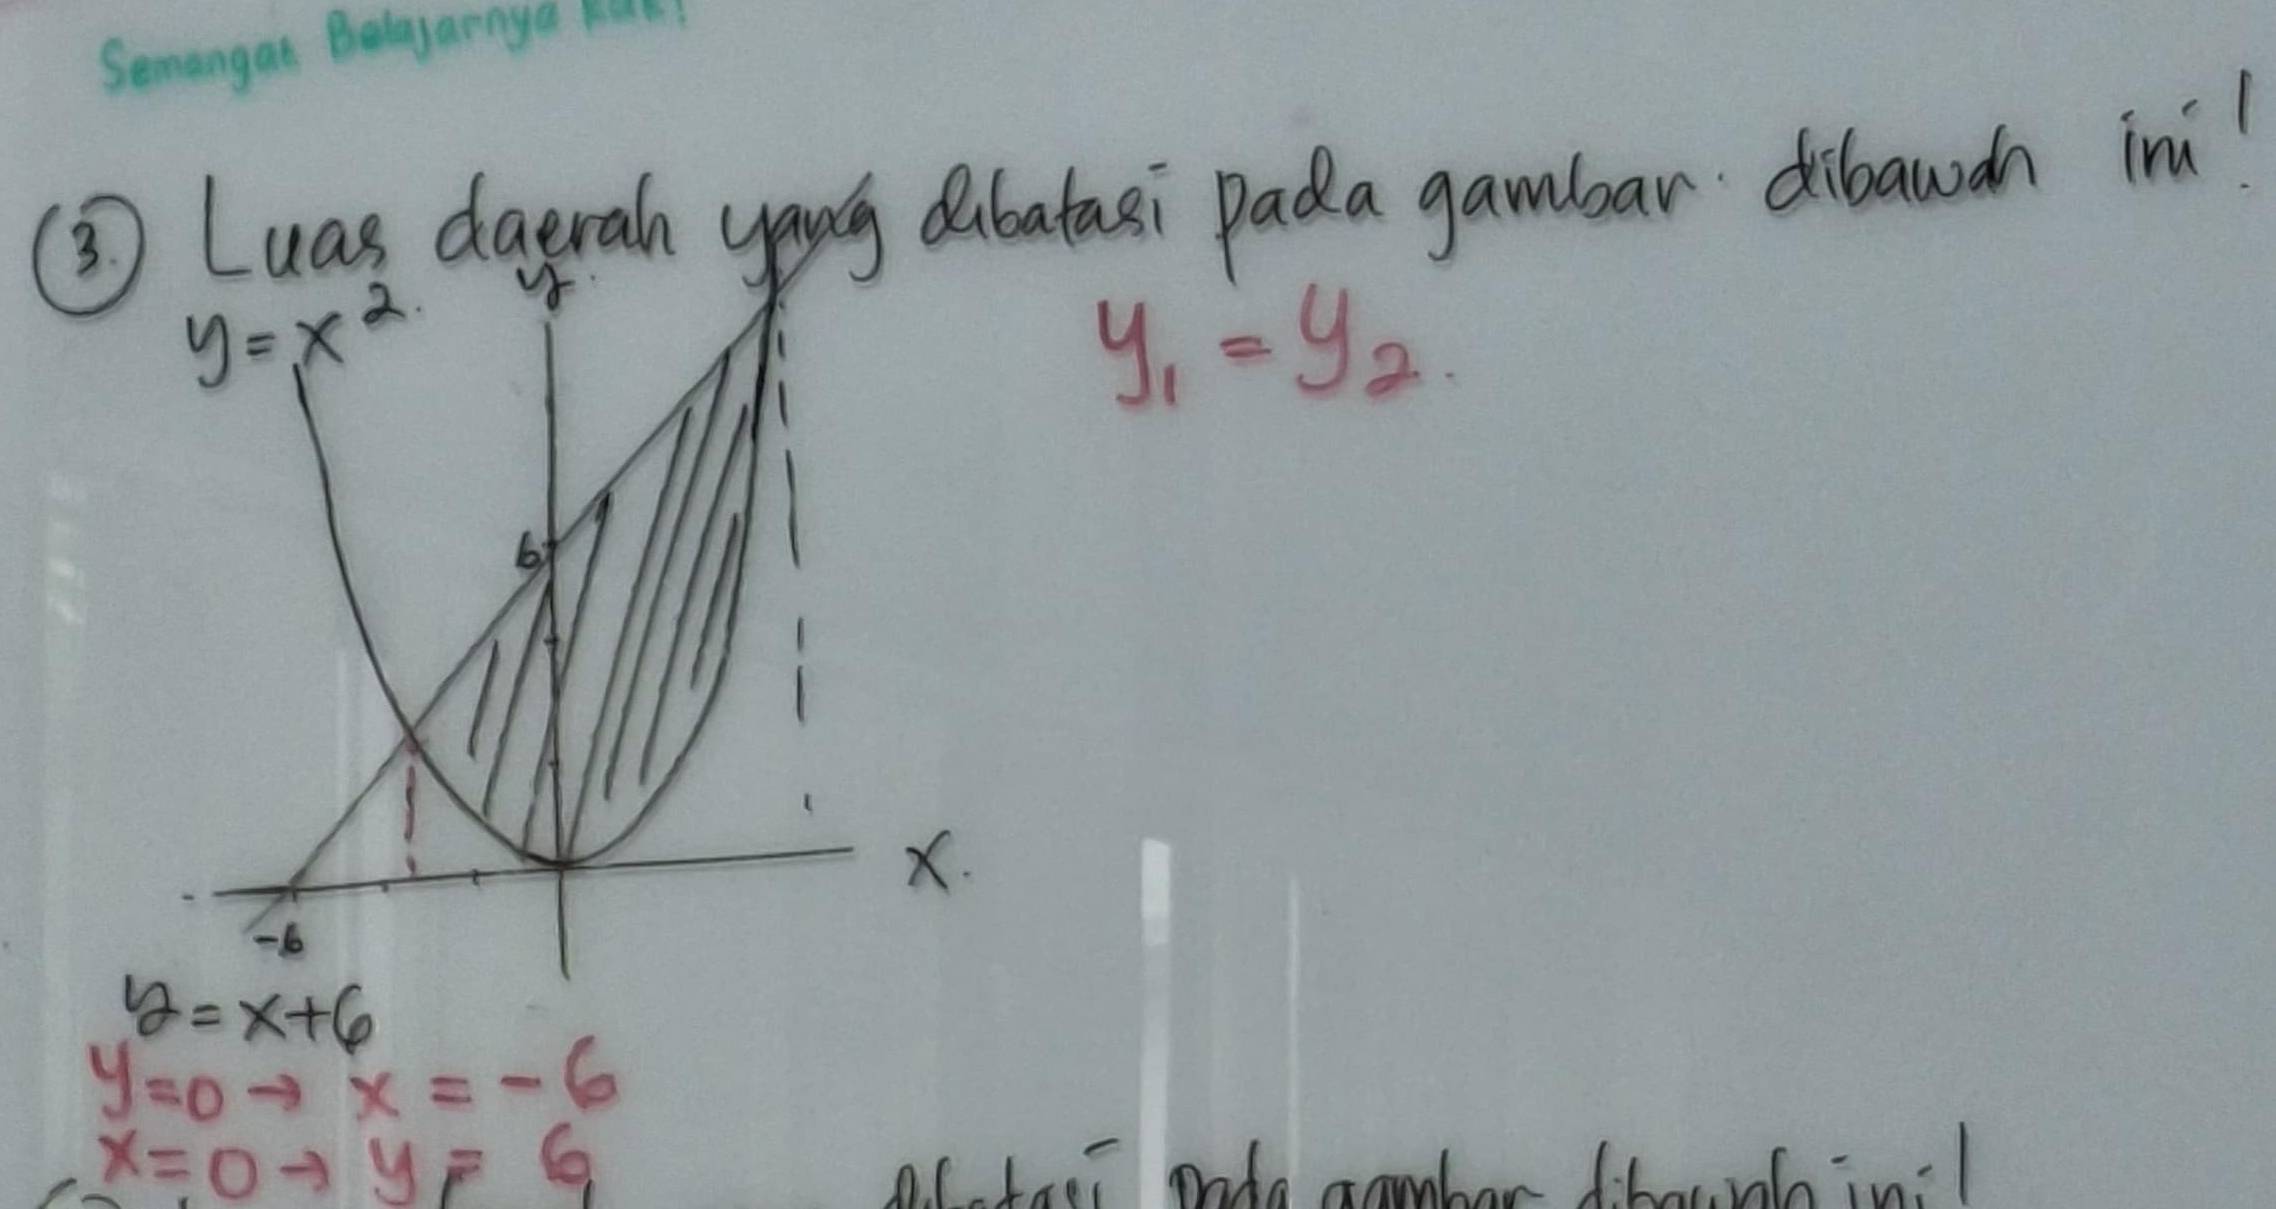 Semangat Belajarnya Kak!
3. Luas daerah yang dibatasi pada gambar dibawah ini!
y = x².
y
y₁ = y₂.
6
x.
-6
y = x+6
y=0 → x = -6
x=0 → y = 6
dibatasi pada gambar dibawah ini!